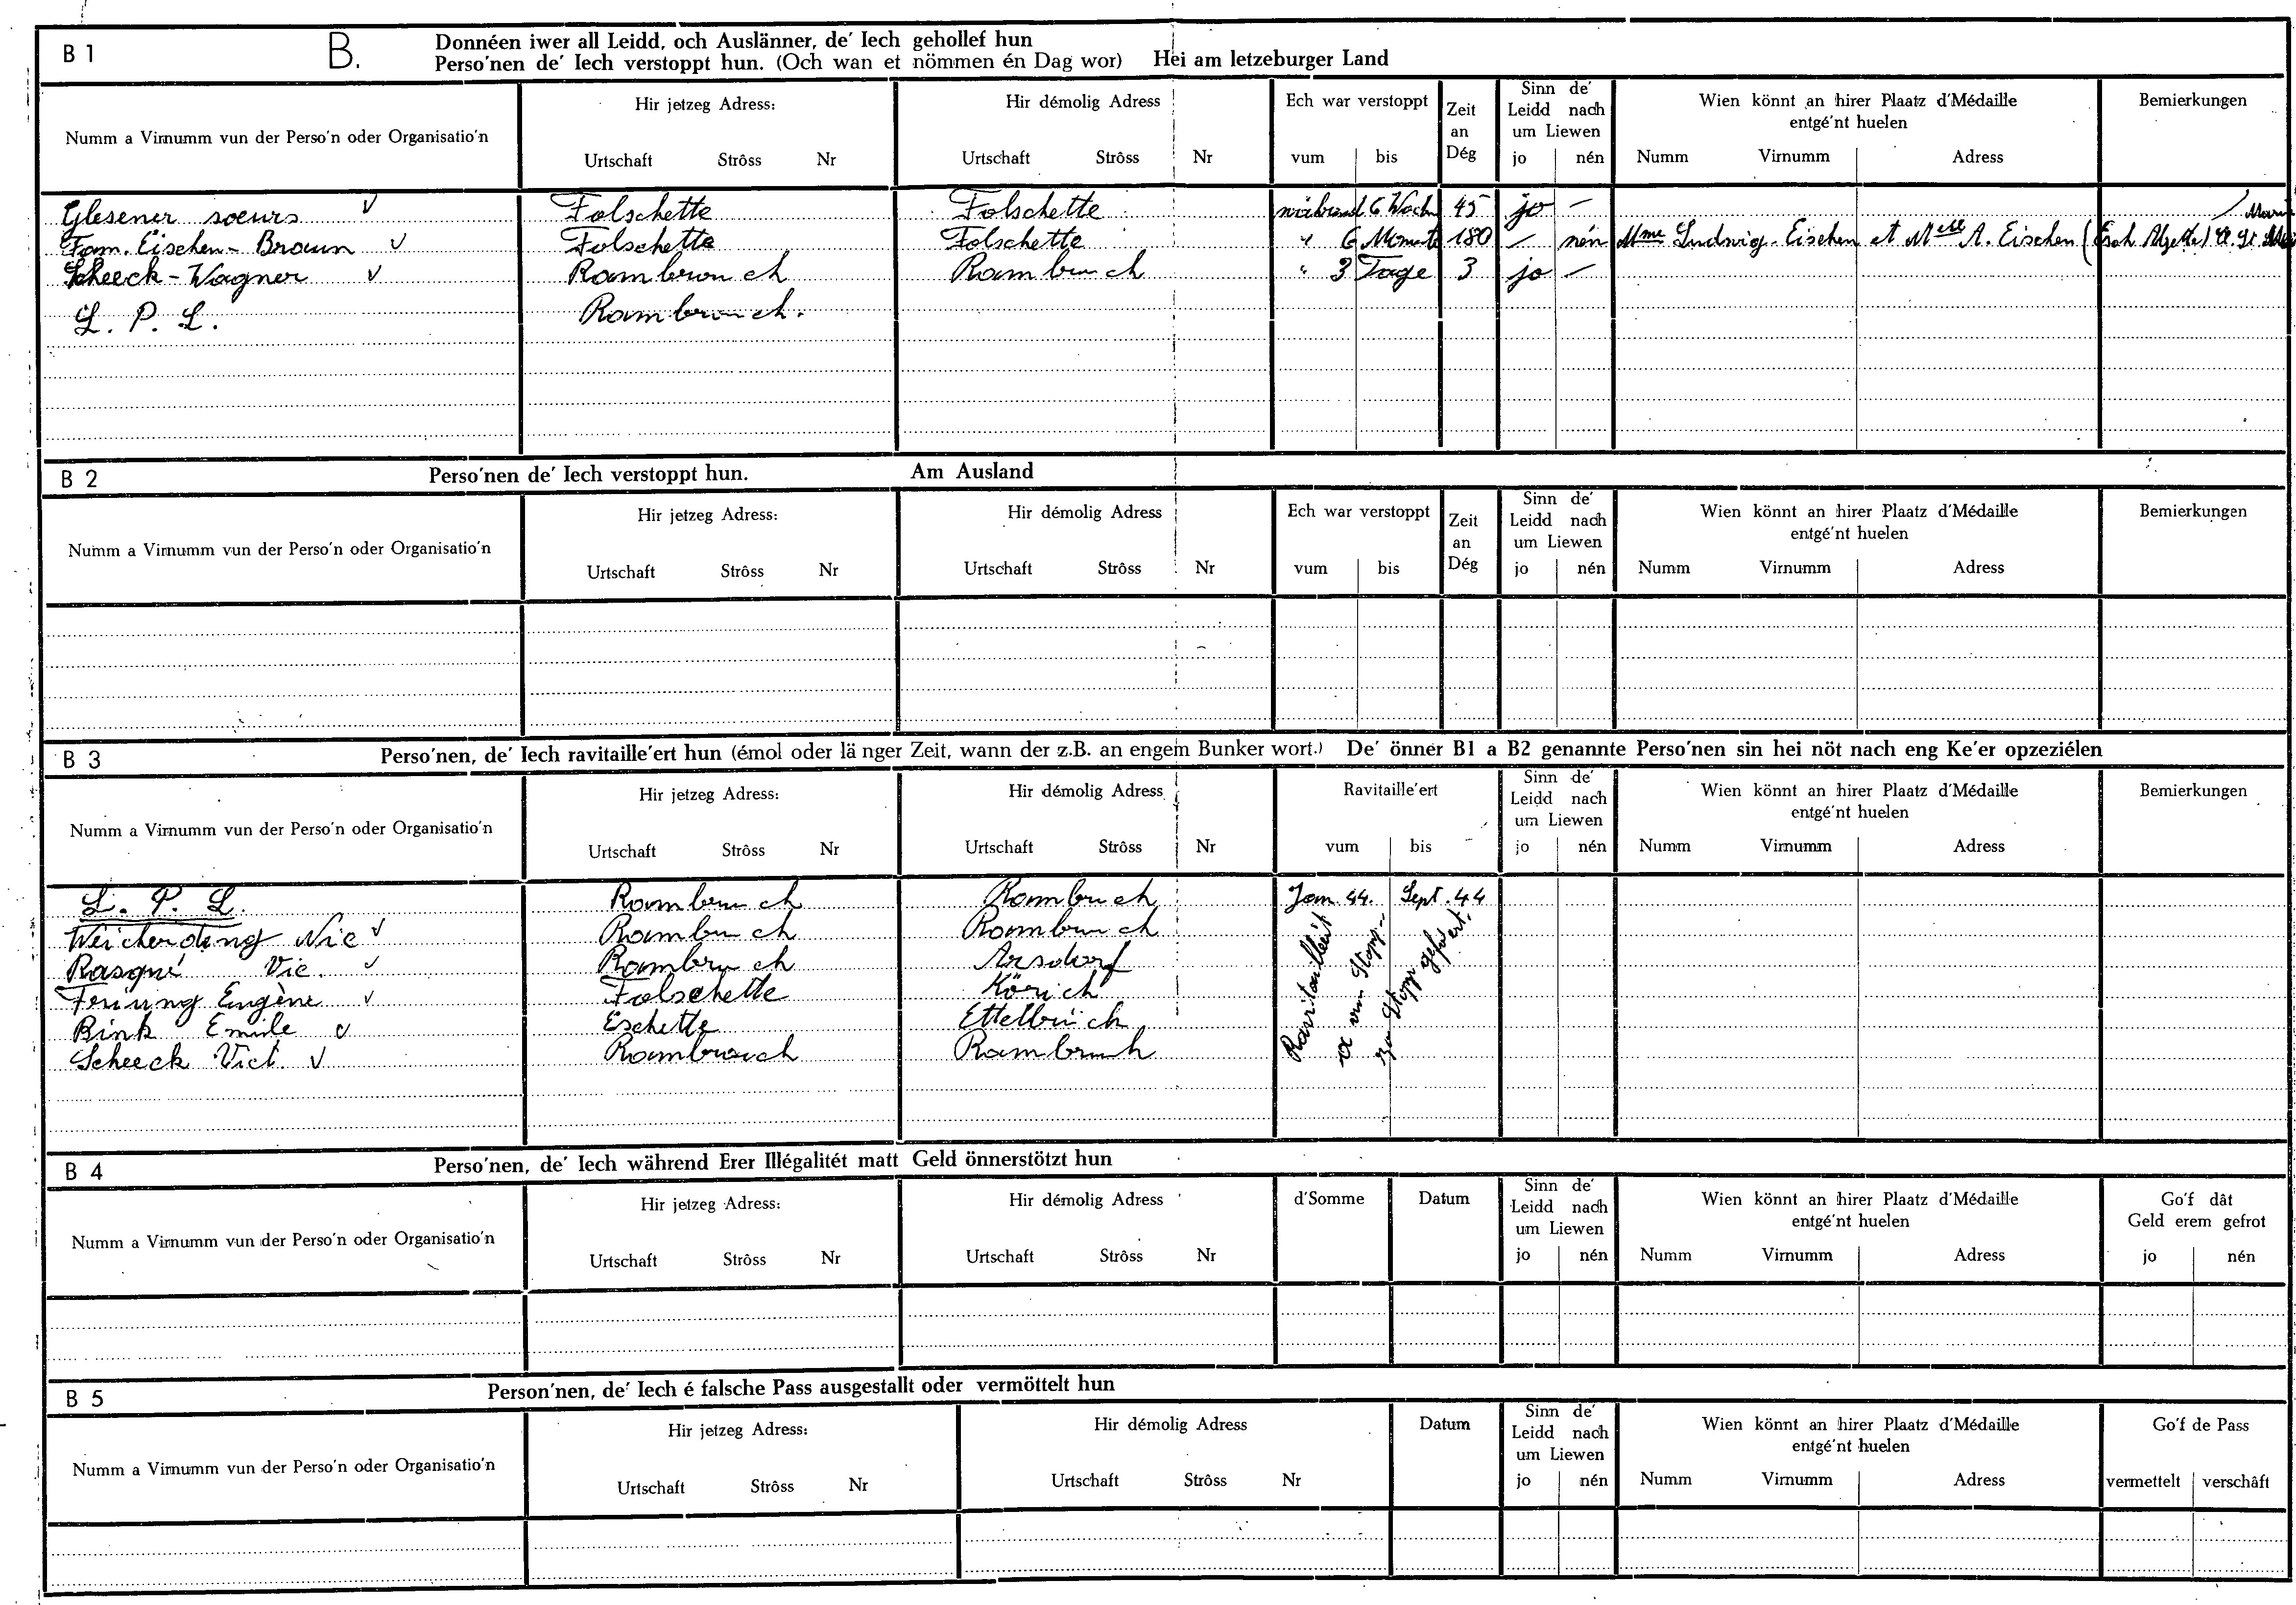 B 1 B. Donnéen iwer all Leidd, och Auslänner, de' Iech gehollef hun
Perso'nen de' Iech verstoppt hun. (Och wan et nömmen én Dag wor) Hei am letzeburger Land
Numm a Virnumm vun der Perso'n oder Organisatio'n
Hir jetzeg Adress:
Urtschaft Strôss Nr
Hir démolig Adress
Urtschaft Strôss Nr
Ech war verstoppt
vum bis
Zeit
an
Dég
Sinn de'
Leidd nach
um Liewen
jo nén
Wien könnt an hirer Plaatz d'Médaille
entgé'nt huelen
Numm Virnumm Adress
Bemierkungen
Glesener soeurs v Folschette Folschette während 6 Woch 45 jo –
Fam. Eischen-Braun v Folschette Folschette " 6 Monate 180 – nén Mme Ludwig-Eischen et Melle A. Eischen (Esch Alzette)
Scheeck-Wagner v Rambrouch Rambruch " 3 Tage 3 jo –
L. P. L. Rambrouch.
B 2 Perso'nen de' Iech verstoppt hun. Am Ausland
Numm a Virnumm vun der Perso'n oder Organisatio'n
Hir jetzeg Adress:
Urtschaft Strôss Nr
Hir démolig Adress
Urtschaft Strôss Nr
Ech war verstoppt
vum bis
Zeit
an
Dég
Sinn de'
Leidd nach
um Liewen
jo nén
Wien könnt an hirer Plaatz d'Médaille
entgé'nt huelen
Numm Virnumm Adress
Bemierkungen
B 3 Perso'nen, de' Iech ravitaille'ert hun (émol oder länger Zeit, wann der z.B. an engem Bunker wort.) De' önner B1 a B2 genannte Perso'nen sin hei nöt nach eng Ke'er opzeziélen
Numm a Virnumm vun der Perso'n oder Organisatio'n
Hir jetzeg Adress:
Urtschaft Strôss Nr
Hir démolig Adress
Urtschaft Strôss Nr
Ravitaille'ert
vum bis
Sinn de'
Leidd nach
um Liewen
jo nén
Wien könnt an hirer Plaatz d'Médaille
entgé'nt huelen
Numm Virnumm Adress
Bemierkungen
L. P. L. Rambruch Rambruch Jan. 44. Sept. 44
Weicherding Nic v Rambruch Rambruch
Rasqué Vic. v Rambruch Arsdorf
Feiung Eugène v Folschette Körich
Bink Emile v Eschette Ettelbrück
Scheeck Vict. v Rambrouch Rambruch
Ravitailléiert
a vun Stopp
zu Stopp gefouert.
B 4 Perso'nen, de' Iech während Erer Illégalitét matt Geld önnerstötzt hun
Numm a Virnumm vun der Perso'n oder Organisatio'n
Hir jetzeg Adress:
Urtschaft Strôss Nr
Hir démolig Adress
Urtschaft Strôss Nr
d'Somme
Datum
Sinn de'
Leidd nach
um Liewen
jo nén
Wien könnt an hirer Plaatz d'Médaille
entgé'nt huelen
Numm Virnumm Adress
Go'f dât
Geld erem gefrot
jo nén
B 5 Person'nen, de' Iech é falsche Pass ausgestallt oder vermöttelt hun
Numm a Virnumm vun der Perso'n oder Organisatio'n
Hir jetzeg Adress:
Urtschaft Strôss Nr
Hir démolig Adress
Urtschaft Strôss Nr
Datum
Sinn de'
Leidd nach
um Liewen
jo nén
Wien könnt an hirer Plaatz d'Médaille
entgé'nt huelen
Numm Virnumm Adress
Go'f de Pass
vermettelt verschâft